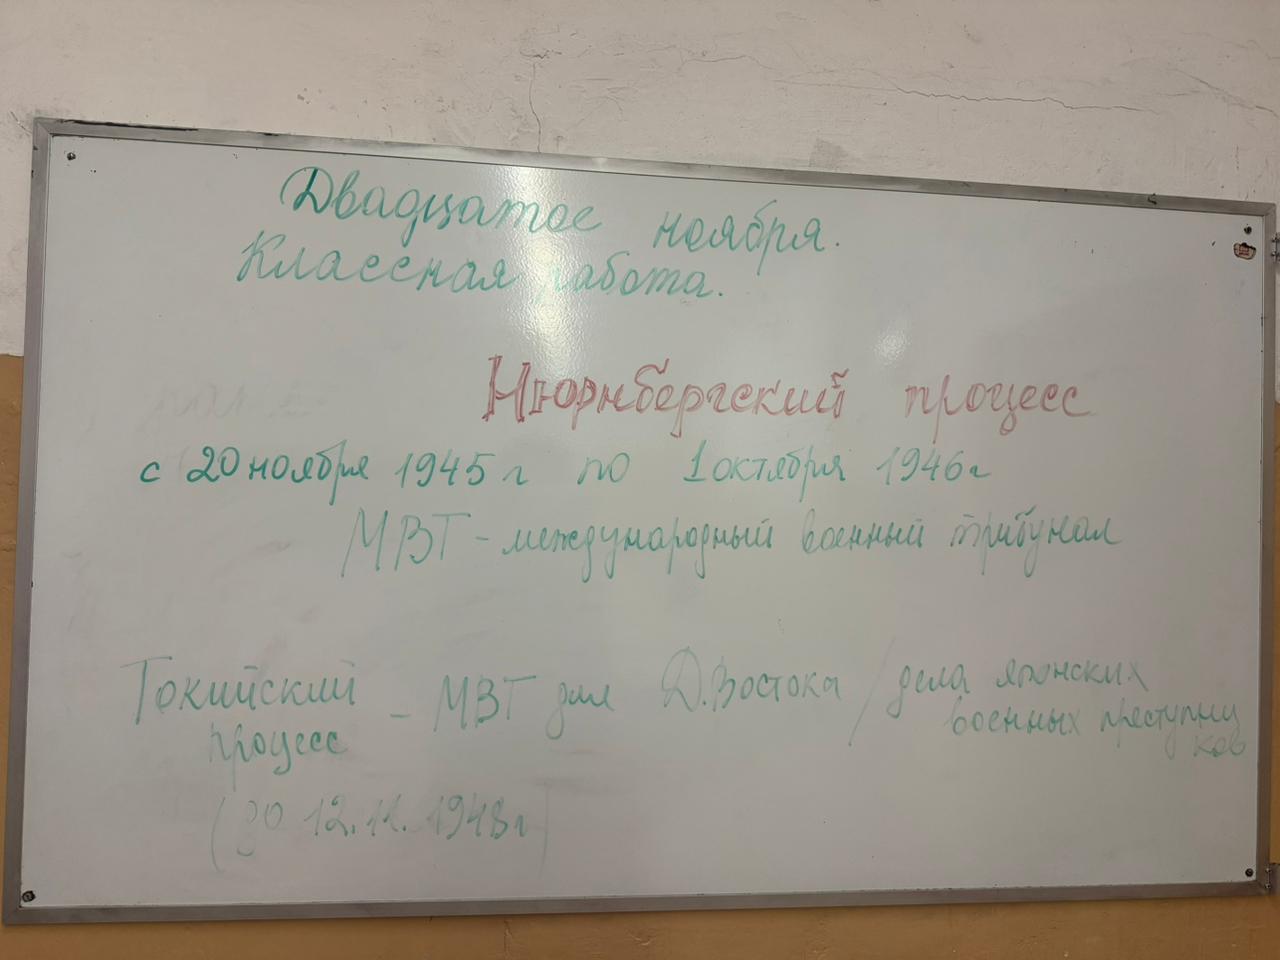 Двадцатое ноября.
Классная работа.
Нюрнбергский процесс
с 20 ноября 1945 г по 1 октября 1946 г
МВТ - международный военный трибунал
Токийский процесс - МВТ для Д.Востока / дела японских военных преступников
(до 12.11.1948 г)